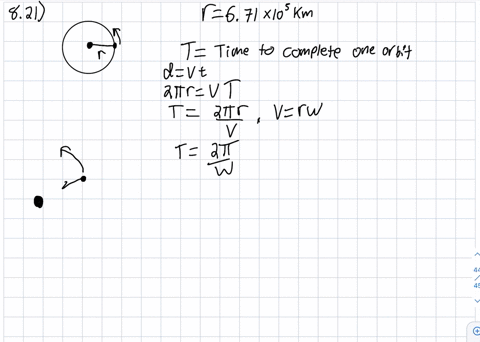 8.21)
r=6.71 ×10⁵ Km
r
T= Time to complete one orbit
d=Vt
2πr=VT
T= 2πr/V, V=rW
T= 2π/W
44
45